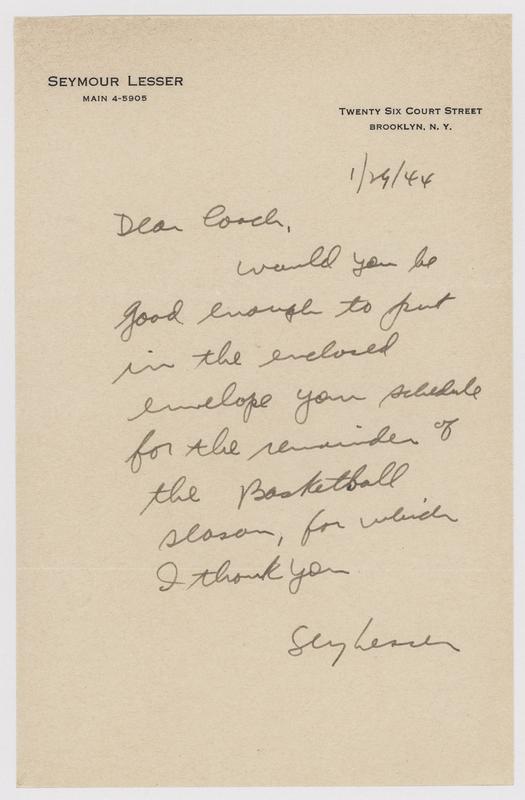 SEYMOUR LESSER
MAIN 4-5905
TWENTY SIX COURT STREET
BROOKLYN, N. Y.
1/29/44
Dear Coach,
Would you be
good enough to put
in the enclosed
envelope your schedule
for the remainder of
the Basketball
season, for which
I thank you
Sey Lesser